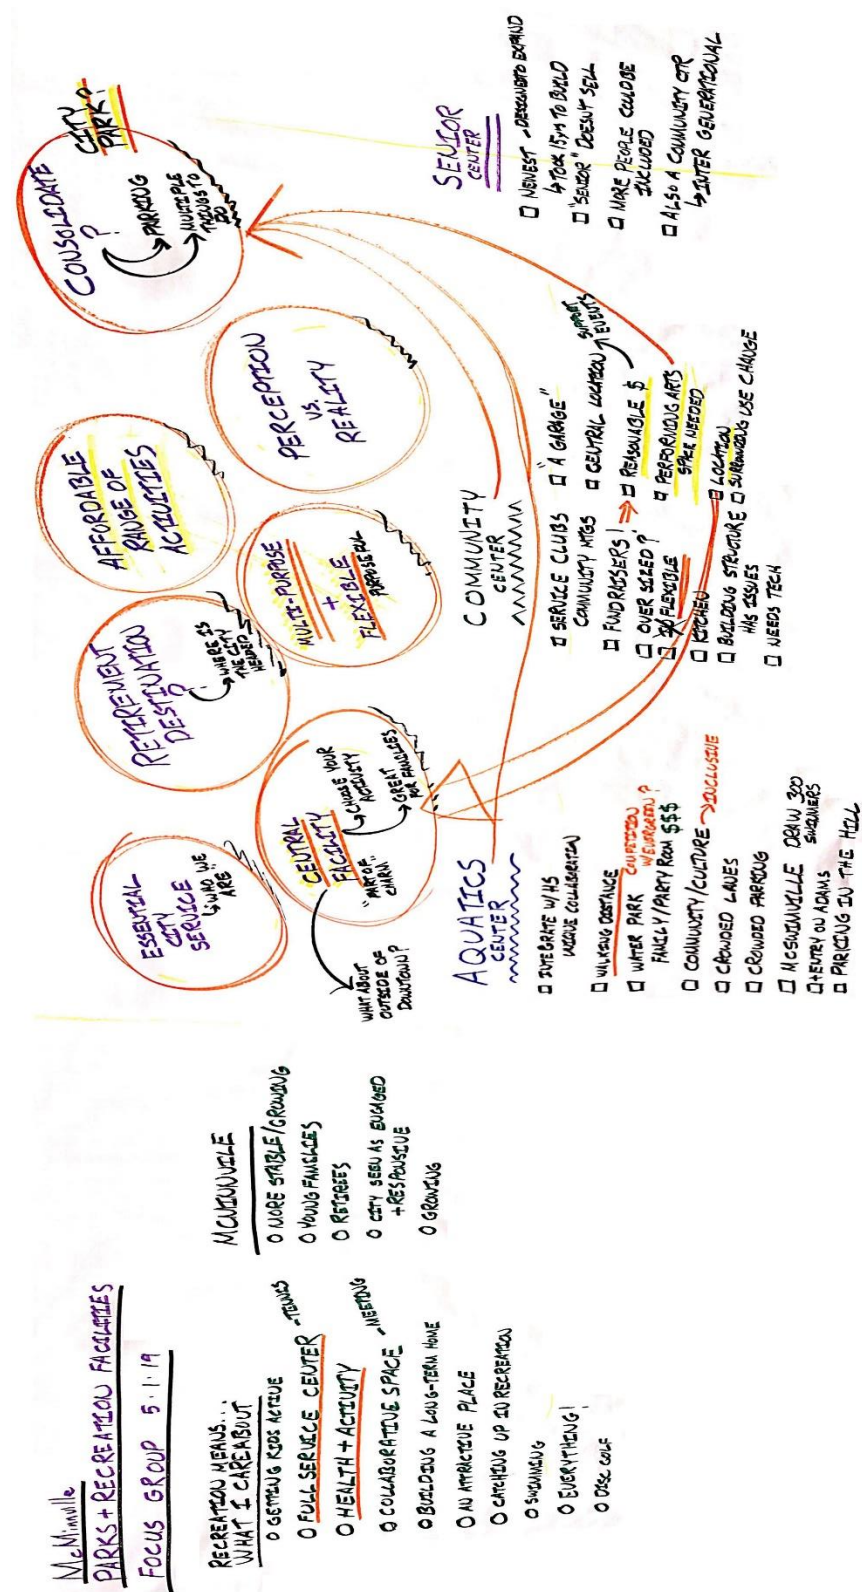 McMinnville
PARKS + RECREATION FACILITIES
FOCUS GROUP 5.1.19
RECREATION MEANS...
WHAT I CARE ABOUT
O GETTING KIDS ACTIVE
O FULL SERVICE CENTER - TENNIS
O HEALTH + ACTIVITY
O COLLABORATIVE SPACE - MEETING
O BUILDING A LONG-TERM HOME
O AN ATTRACTIVE PLACE
O CATCHING UP IN RECREATION
O SWIMMING
O EVERYTHING!
O DISC GOLF
MCMINNVILLE
O MORE STABLE/GROWING
O YOUNG FAMILIES
O RETIREES
O CITY SEEN AS ENGAGED
+ RESPONSIVE
O GROWING
ESSENTIAL
CITY
SERVICE
↳ WHO WE
ARE
RETIREMENT
DESTINATION
?
WHERE IS
THE CITY
HEADED
AFFORDABLE
RANGE OF
ACTIVITIES
CONSOLIDATE
?
PARKING
MULTIPLE
THINGS TO
DO
CITY
PARK?
CENTRAL
FACILITY
"PART OF
CHARM"
CHOOSE YOUR
ACTIVITY
GREAT
FOR FAMILIES
WHAT ABOUT
OUTSIDE OF
DOWNTOWN?
MULTI-PURPOSE
+
FLEXIBLE
PURPOSEFUL
PERCEPTION
VS.
REALITY
AQUATICS
CENTER
□ INTEGRATE W/HS
UNIQUE COLLABORATION
□ WALKING DISTANCE
□ WATER PARK COMPETITION
W/EVERGREEN?
FAMILY/PARTY ROOM $$$
□ COMMUNITY/CULTURE → INCLUSIVE
□ CROWDED LANES
□ CROWDED PARKING
□ MCSWIMVILLE DRAW 300
SWIMMERS
□ + ENTRY ON ADAMS
□ PARKING IN THE HILL
COMMUNITY
CENTER
□ SERVICE CLUBS
COMMUNITY MTGS
□ FUNDRAISERS!
□ OVER SIZED?
□ FLEXIBLE
□ KITCHEN
□ BUILDING STRUCTURE
HAS ISSUES
□ NEEDS TECH
□ "A GARAGE"
□ CENTRAL LOCATION SUPPORT
EVENTS
□ REASONABLE $
□ PERFORMING ARTS
SPACE NEEDED
□ LOCATION
□ SURROUNDING USE CHANGE
SENIOR
CENTER
□ NEWEST - DESIGNED TO EXPAND
↳ TOOK 15yrs TO BUILD
□ "SENIOR" DOESN'T SELL
□ MORE PEOPLE COULD BE
INCLUDED
□ ALSO A COMMUNITY CTR
↳ INTER GENERATIONAL